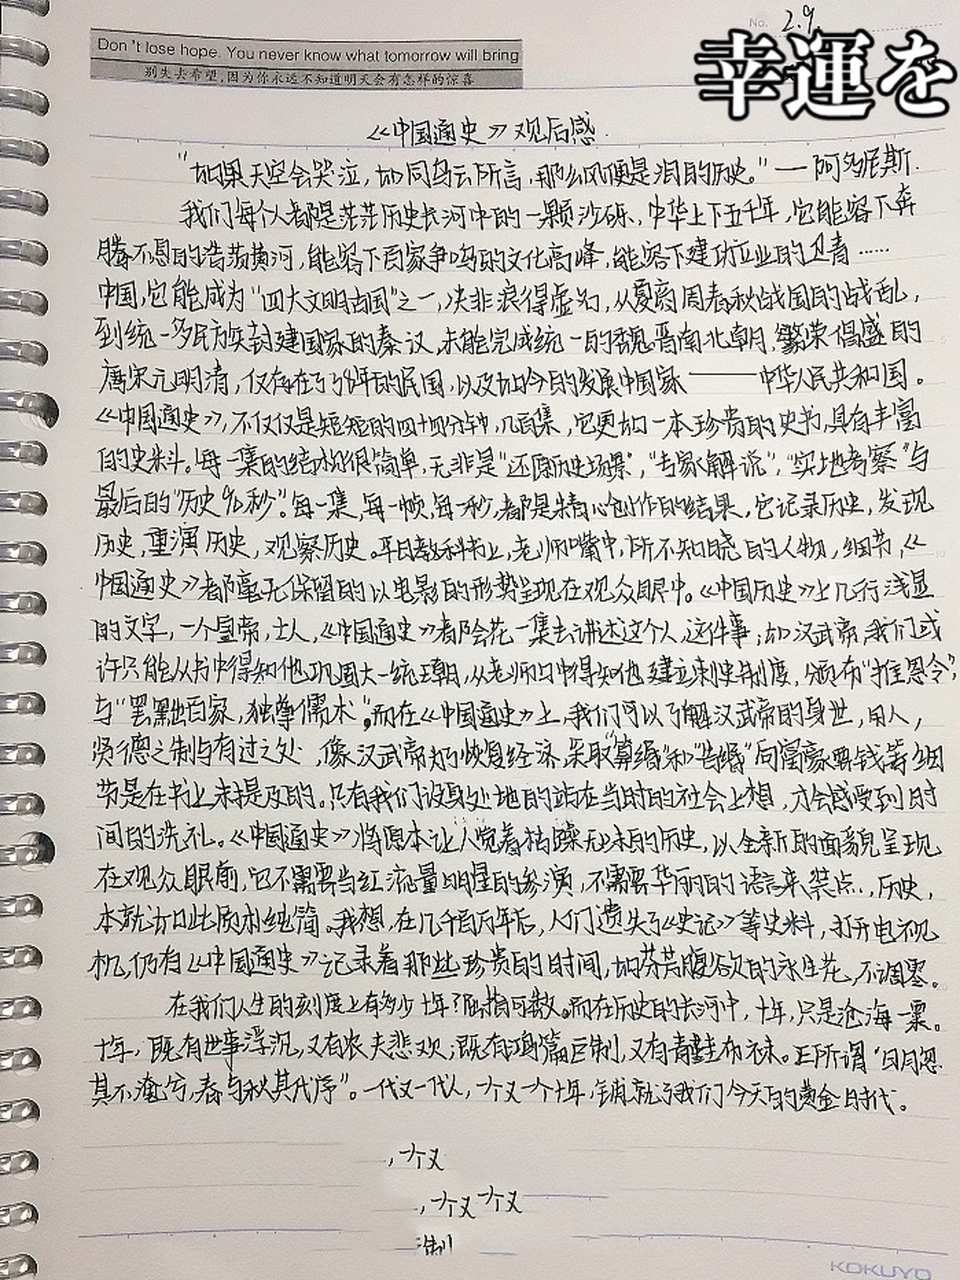 No. 2.9.
幸運を
Don't lose hope. You never know what tomorrow will bring
别失去希望,因为你永远不知道明天会有怎样的惊喜
《中国通史》观后感.
“如果天空会哭泣,如同乌云所言,那么风便是泪的历史。”——阿多尼斯.
我们每个人都是茫茫历史长河中的一颗沙砾,中华上下五千年,它能容下奔
腾不息的浩荡黄河,能容下百家争鸣的文化高峰,能容下建功立业的卫青……
中国,它能成为“四大文明古国”之一,决非浪得虚名,从夏商周春秋战国的战乱,
到统一多民族封建国家的秦汉,未能完成统一的魏晋南北朝,繁荣倡盛的
唐宋元明清,仅存在了38年的民国,以及如今的发展中国家——中华人民共和国。
《中国通史》,不仅仅是短短的四十四分钟,几百集,它更如一本珍贵的史书,具有丰富
的史料。每一集的结构很简单,无非是“还原历史场景”,“专家解说”,“实地考察”与
最后的“历史90秒”。每一集,每一帧,每一秒,都是精心创作的结果,它记录历史,发现
历史,重演历史,观察历史。平日教科书上,老师口嘴中,所不知晓的人物,细节,《
中国通史》都毫无保留的以电影的形势呈现在观众眼中。《中国历史》上几行浅显
的文字,一个皇帝,士人,《中国通史》都会花一集去讲述这个人,这件事;如汉武帝,我们或
许只能从书中得知他巩固大一统王朝,从老师口中得知他建立刺史制度,颁布“推恩令”,
与“罢黜百家,独尊儒术”。而在《中国通史》上,我们可以了解汉武帝的身世,用人,
贤德之制与有过之处,像汉武帝为了恢复经济,采取“算缗”和“告缗”向富豪要钱等细
节是在书上未提及的。只有我们设身处地的站在当时的社会上想,才会感受到时
间的洗礼。《中国通史》将原本让人觉着枯躁无味的历史,以全新的面貌呈现
在观众眼前,它不需要当红流量明星的参演,不需要华丽的语言来装点.,历史,
本就该如此质朴纯简。我想,在几千百万年后,人们遗失了《史记》等史料,打开电视
机,仍有《中国通史》记录着那些珍贵的时间,如芬芳馥郁的永生花,不凋零。
在我们人生的刻度上有多少十年?屈指可数。而在历史的长河中,十年,只是沧海一粟。
十年,既有世事浮沉,又有农夫悲欢,既有鸿篇巨制,又有青鞋布袜。正所谓“日月忽
其不淹兮,春与秋其代序”。一代又一代人,一个又一个十年,铺就了我们今天的黄金时代。
,一个又
,一个又一个又
制
KOKUYO